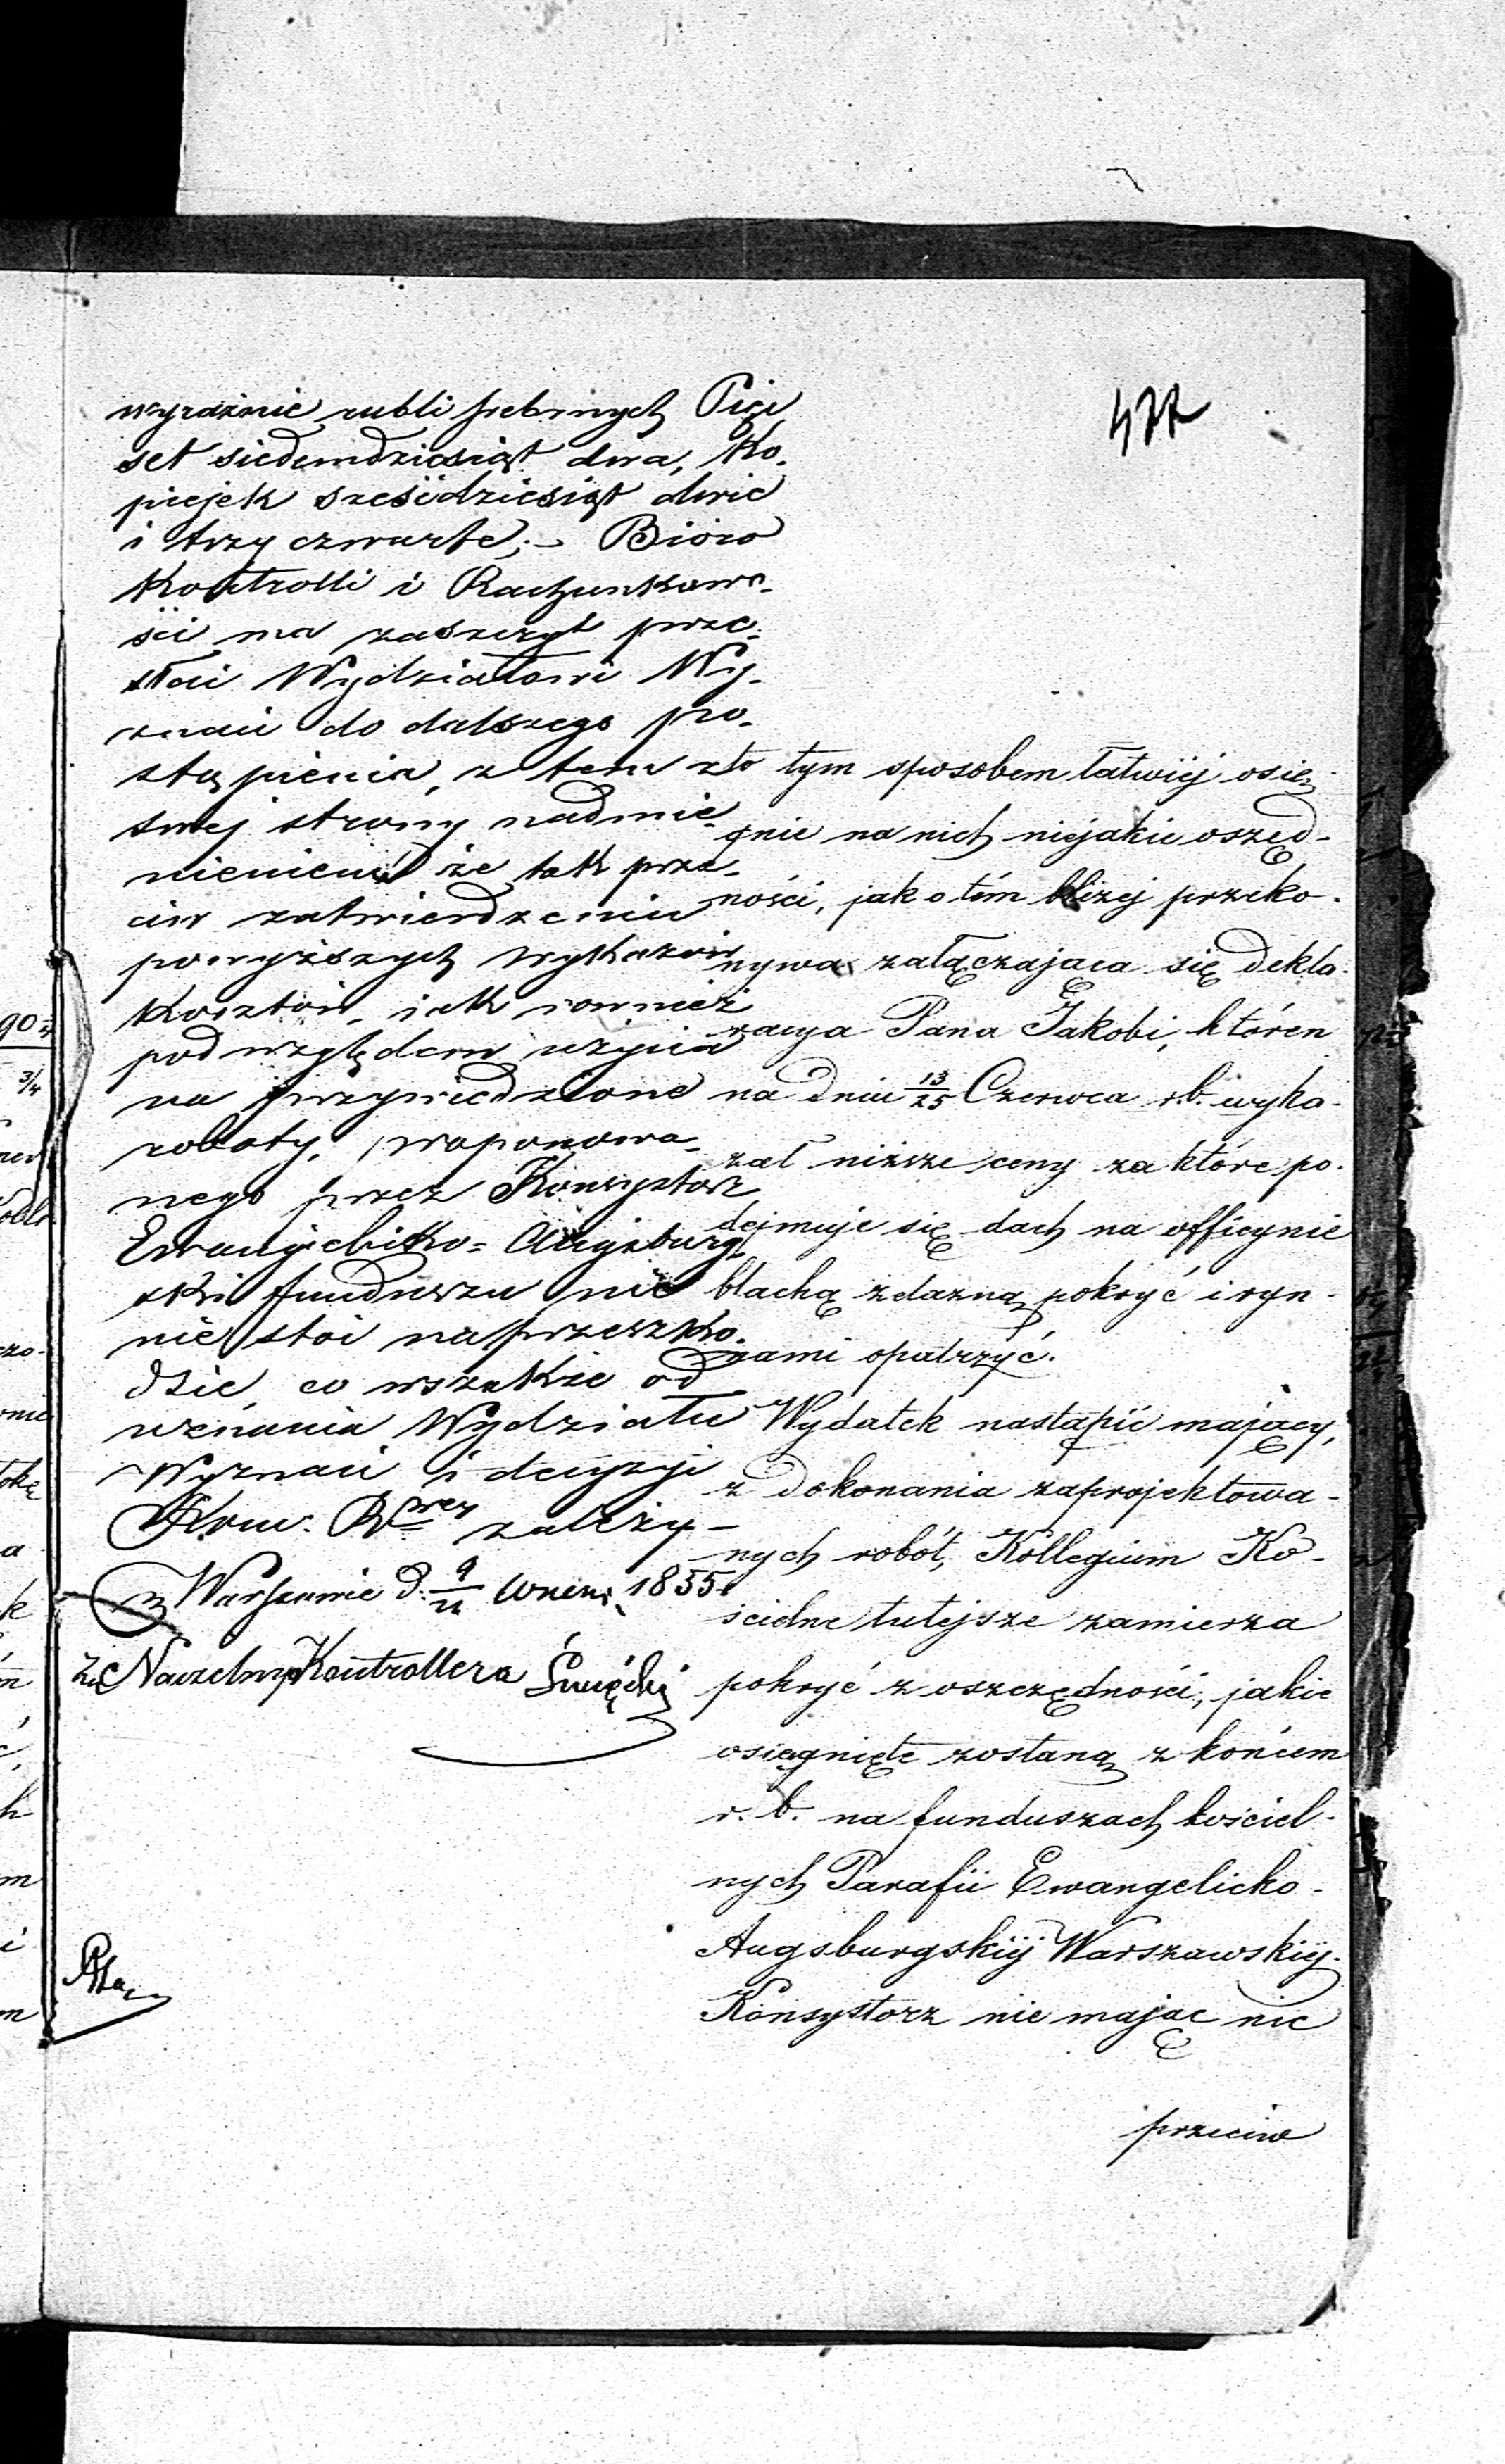 477
wyraźnie rubli srebrnych Pięć
set siedemdziesiąt dwa, Ko-
piejek sześćdziesiąt dwie
i trzy czwarte; – Bióro
Kontrolli i Rachunkowo-
ści ma zaszczyt prze-
słać Wydziałowi Wy-
znań do dalszego po-
stąpienia, z tem ze
swej strony nadmie-
nieniem że tak prze-
ciw zatwierdzeniu
powyższych wykazów
kosztów, jak również
pod względem użycia
na przywiedzione
roboty, proponowa-
nego przez Konsystorz
Ewangielicko-Augsburg-
ski funduszu nic
nie stoi na przeszko-
dzie, co wszakże od
uznania Wydziału
Wyznań i decyzyi
Kom. Rz. zależy –
w Warszawie d. 9/21 1855
Za Naczelnego Kontrollera
to tym sposobem łatwiéj osię-
gnie na nich niejakie oszęd-
ności, jak o tém bliżej przeko-
nywa załączająca się dekla-
racya Pana Jakobi, któren
na dniu 13/25 Czerwca r.b. wyka-
zał niższe ceny za które po-
dejmuje się dach na officynie
blachą żelazną pokryć i ryn-
nami opatrzyć.
Wydatek nastąpić mający,
z dokonania zaprojektowa-
nych robót, Kollegium Ko-
ścielne tutejsze zamierza
pokryć z oszczędności, jakie
osięgnięte zostaną z końcem
r. b. na funduszach kościel-
nych Parafii Ewangelicko-
Augsburgskiéj Warszawskiéj.
Konsystorz nie mając nic
przeciw